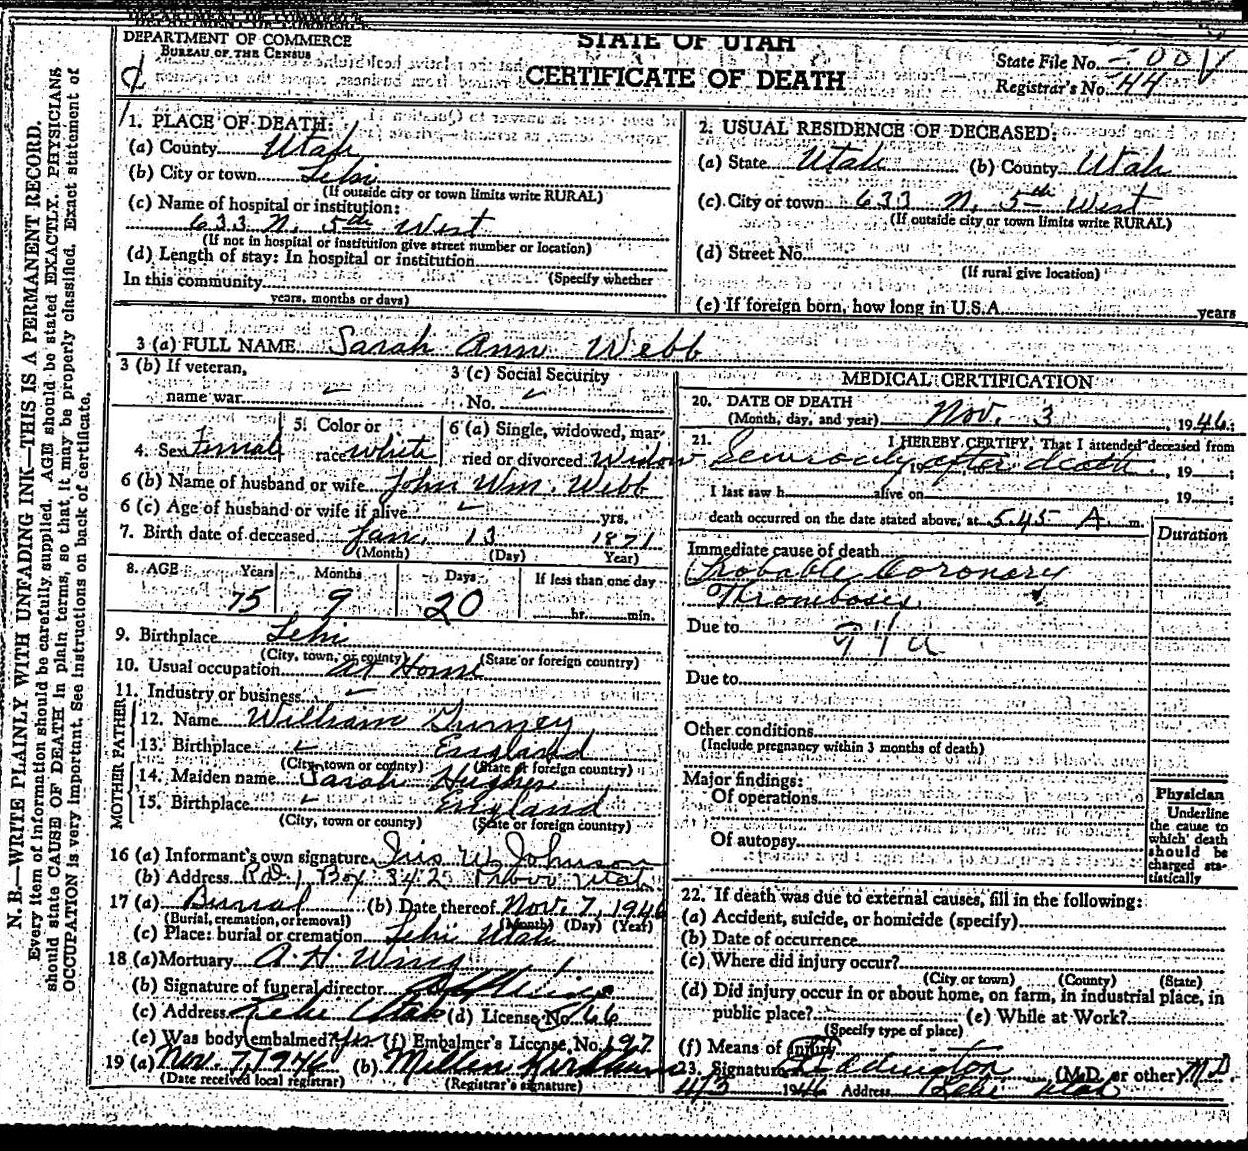 DEPARTMENT OF COMMERCE
BUREAU OF THE CENSUS
STATE OF UTAH
CERTIFICATE OF DEATH
State File No.
Registrar's No. 44
N. B.—WRITE PLAINLY WITH UNFADING INK—THIS IS A PERMANENT RECORD.
Every item of information should be carefully supplied. AGE should be stated EXACTLY. PHYSICIANS
should state CAUSE OF DEATH in plain terms, so that it may be properly classified. Exact statement of
OCCUPATION is very important. See instructions on back of certificate.
1. PLACE OF DEATH:
(a) County Utah
(b) City or town Lehi
(If outside city or town limits write RURAL)
(c) Name of hospital or institution:
633 N. 5th West
(If not in hospital or institution give street number or location)
(d) Length of stay: In hospital or institution
(Specify whether
In this community
years, months or days)
2. USUAL RESIDENCE OF DECEASED:
(a) State Utah (b) County Utah
(c) City or town 633 N. 5th West
(If outside city or town limits write RURAL)
(d) Street No.
(If rural give location)
(e) If foreign born, how long in U.S.A. years
3 (a) FULL NAME Sarah Ann Webb
3 (b) If veteran,
name war
3 (c) Social Security
No.
4. Sex Femal
5. Color or
race white
6 (a) Single, widowed, mar-
ried or divorced Widow
6 (b) Name of husband or wife John Wm. Webb
6 (c) Age of husband or wife if alive yrs.
7. Birth date of deceased Jan. 13 1871
(Month) (Day) Year)
8. AGE Years Months Days If less than one day
75 9 20 hr. min.
9. Birthplace Lehi
(City, town, or county) (State or foreign country)
10. Usual occupation at Home
11. Industry or business
FATHER
12. Name William Gurney
13. Birthplace England
(City, town or county) (State or foreign country)
MOTHER
14. Maiden name Sarah Hughes
15. Birthplace England
(City, town or county) (State or foreign country)
16 (a) Informant's own signature Iris W. Johnson
(b) Address R.D. 1 Box 342 Provo Utah
17 (a) Burial (b) Date thereof Nov. 7, 1946
(Burial, cremation, or removal) (Month) (Day) (Year)
(c) Place: burial or cremation Lehi Utah
18 (a) Mortuary A. H. Wing
(b) Signature of funeral director
(c) Address Lehi Utah (d) License No. 66
(e) Was body embalmed? Yes (f) Embalmer's License No. 197
19 (a) Nov. 7, 1946 (b)
(Date received local registrar) (Registrar's signature)
MEDICAL CERTIFICATION
20. DATE OF DEATH
(Month, day, and year) Nov. 3, 1946
21. I HEREBY CERTIFY, That I attended deceased from
19 after death, 19
I last saw h alive on, 19
death occurred on the date stated above, at 5.45 A m.
Duration
Immediate cause of death
Probable Coronary
Thrombosis
Due to 94a
Due to
Other conditions
(Include pregnancy within 3 months of death)
Major findings:
Of operations
Of autopsy
Physician
Underline
the cause to
which death
should be
charged sta-
tistically
22. If death was due to external causes, fill in the following:
(a) Accident, suicide, or homicide (specify)
(b) Date of occurrence
(c) Where did injury occur?
(City or town) (County) (State)
(d) Did injury occur in or about home, on farm, in industrial place, in
public place? (e) While at Work?
(Specify type of place)
(f) Means of injury
23. Signature Eddington (M.D. or other) M.D.
1946 Address Lehi Utah